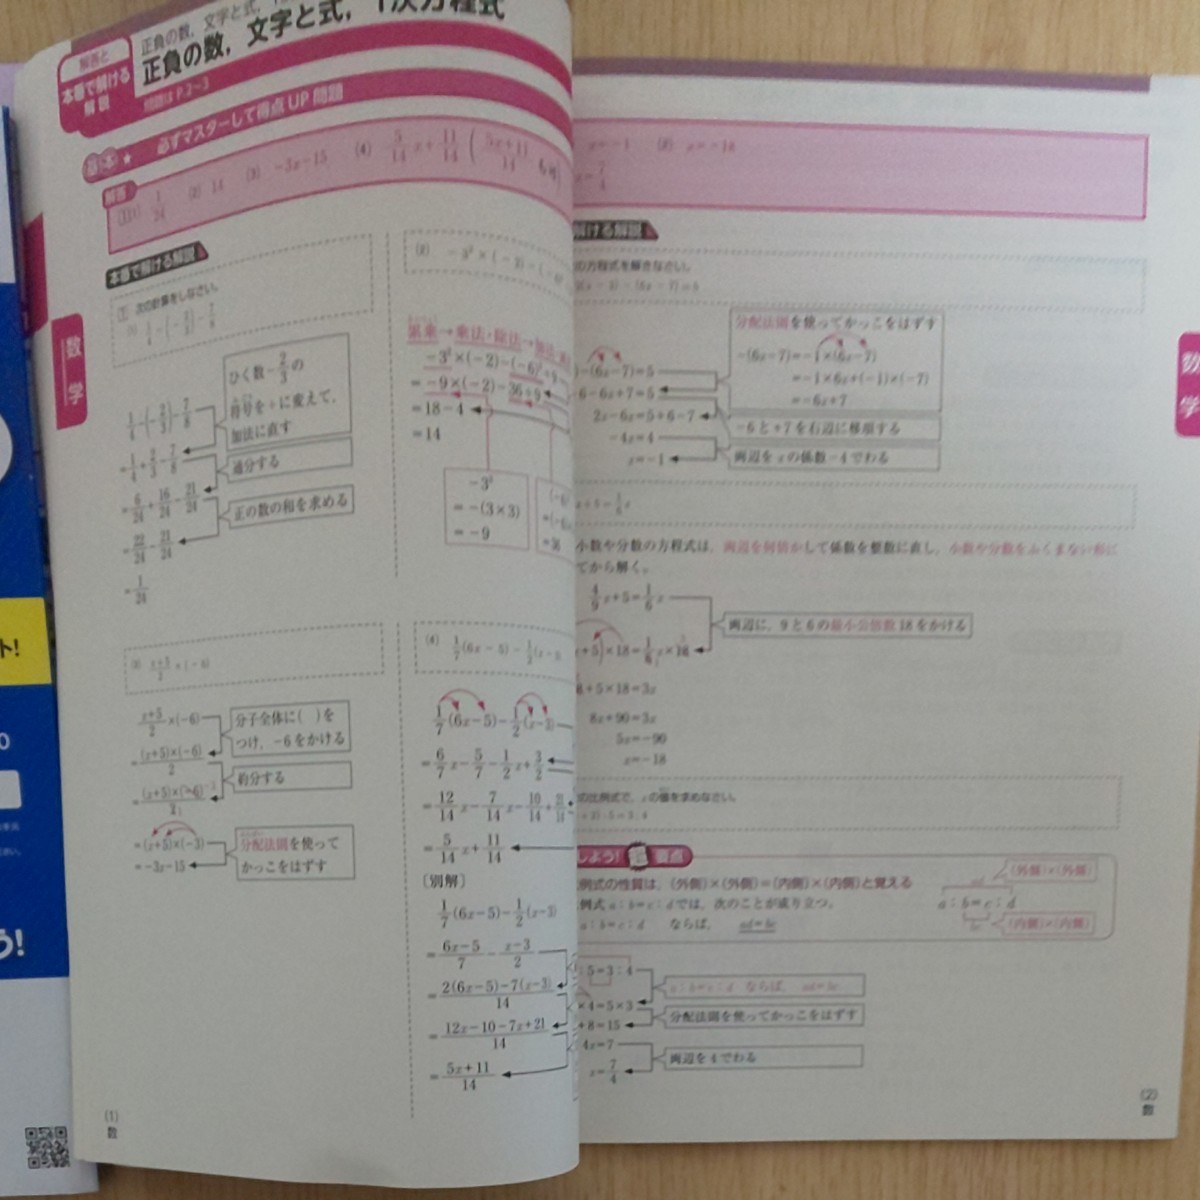 解答と
本番で解ける
解説
正負の数，文字と式，1次方程式
問題は P.2~3
基本★ 必ずマスターして得点UP問題
解答
(1)(1) 1/24 (2) 14 (3) -3x-15 (4) 5/14 x+11/14 (5x+11/14
本番で解ける解説
次の計算をしなさい。
1/4-(-2/3)-7/8
ひく数-2/3の
符号を+に変えて，
加法に直す
1/4-(-2/3)-7/8
=1/4+2/3-7/8
通分する
=6/24+16/24-21/24
正の数の和を求める
=22/24-21/24
=1/24
(3) x+5/2×(-6)
x+5/2×(-6)
分子全体に( )を
つけ，-6をかける
=(x+5)×(-6)/2
約分する
=(x+5)×(-3)
=-3x-15
分配法則を使って
かっこをはずす
(1)
数
数学
(2) -3²×(-2)-(-6)
累乗→乗法・除法→加法
-3²×(-2)-(-6)²÷9
=-9×(-2)-36÷9
=18-4
=14
-3²
=-(3×3)
=-9
=36
(4) 1/7(6x-5)-1/2(x-3)
1/7(6x-5)-1/2(x-3)
=6/7x-5/7-1/2x+3/2
=12/14x-7/14x-10/14+21/14
=5/14x+11/14
〔別解〕
1/7(6x-5)-1/2(x-3)
=6x-5/7-x-3/2
=2(6x-5)-7(x-3)/14
=12x-10-7x+21/14
=5x+11/14
x=-1 (2) x=-18
x=7/4
解ける解説
の方程式を解きなさい。
-(6x-7)=5
分配法則を使ってかっこをはずす
-(6x-7)=-1×(6x-7)
=-1×6x+(-1)×(-7)
=-6x+7
-6-6x+7=5
2x-6x=5+6-7
-6と+7を右辺に移項する
-4x=4
x=-1
両辺をxの係数-4でわる
x+5=1/6x
小数や分数の方程式は，両辺を何倍かして係数を整数に直し，小数や分数をふくまない形に
てから解く。
4/9x+5=1/6x
両辺に，9と6の最小公倍数18をかける
+5)×18=1/6x×18
+5×18=3x
8x+90=3x
5x=-90
x=-18
の比例式で，xの値を求めなさい。
+2):5=3:4
しよう！ 要点
例式の性質は，(外側)×(外側)=(内側)×(内側)と覚える
例式 a:b=c:d では，次のことが成り立つ。
a:b=c:d ならば， ad=bc
ad
(外側)×(外側)
a:b=c:d
bc
(内側)×(内側)
:5=3:4
a:b=c:d ならば， ad=bc
×4=5×3
分配法則を使ってかっこをはずす
+8=15
4x=7
両辺を4でわる
x=7/4
(2)
数
数学
ト!
う!